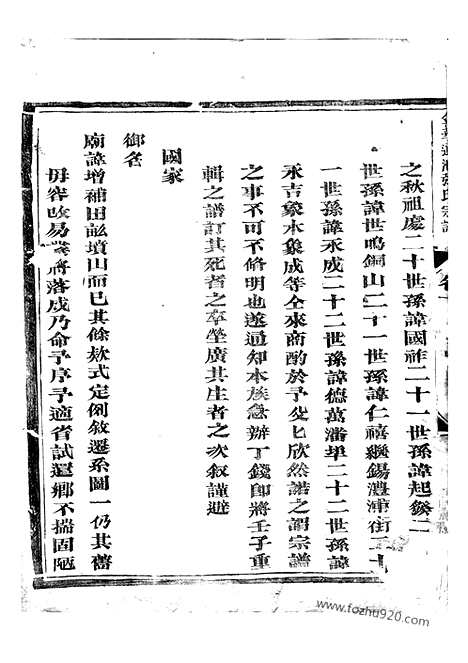 之秋祖處二十世孫諱國祚二十一世孫諱起㕘二
世孫諱世鳴銅山二十一世孫諱仁禧繼錫澧浦街二十
一世孫諱永成二十二世孫諱德萬潘畢二十二世孫諱
永吉象本象成等全來商酌於予㕛匕欣然諾之謂宗譜
之事不可不脩明也遂通知本族急辦丁錢即將壬子重
輯之譜訂其死者之卒塋廣其生者之次敘謹避
國家
御名
廟諱增補田畝墳山而已其餘欵式定例敘遷系圖一仍其舊
毋容改易業將落成乃命予序予適省試還鄉不揣固陋
www.fozhu920.com